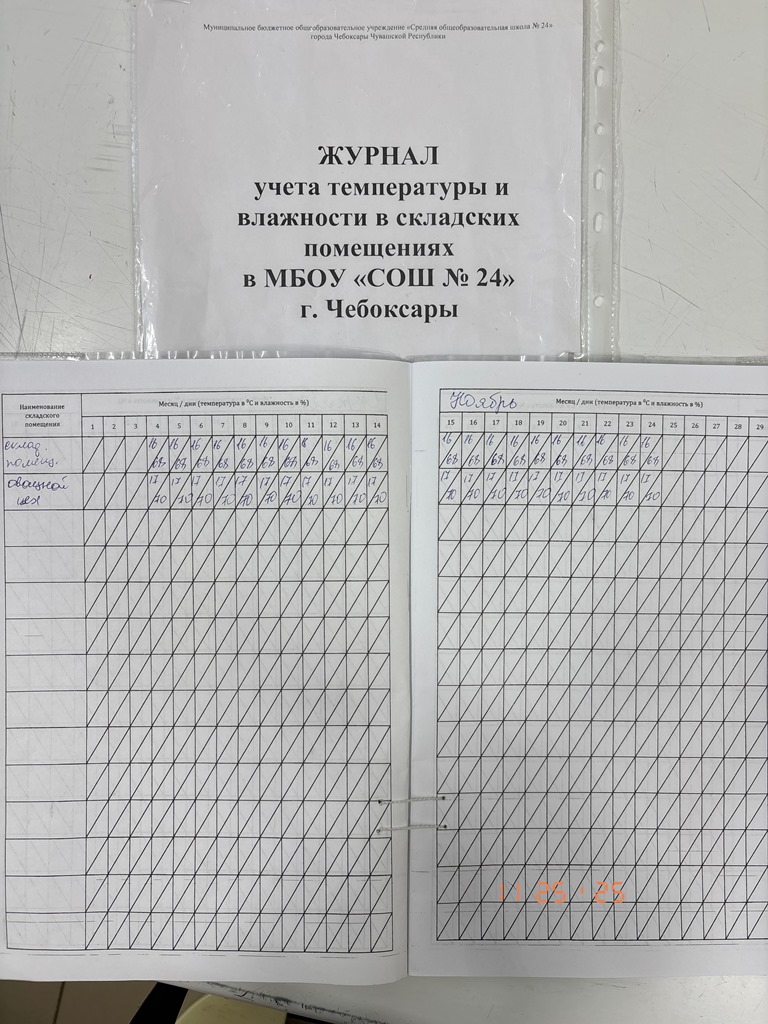 Муниципальное бюджетное общеобразовательное учреждение «Средняя общеобразовательная школа № 24»
города Чебоксары Чувашской Республики
ЖУРНАЛ
учета температуры и
влажности в складских
помещениях
в МБОУ «СОШ № 24»
г. Чебоксары
Наименование
складского
помещения
Месяц / дни (температура в °C и влажность в %)
1 2 3 4 5 6 7 8 9 10 11 12 13 14
склад. 16 16 16 16 16 16 16 16 16 16 16
помещ. 68 68 68 68 68 68 68 68 68 68 68
овощной 17 17 17 17 17 17 17 17 17 17 17
цех 70 70 70 70 70 70 70 70 70 70 70
Ноябрь Месяц / дни (температура в °C и влажность в %)
15 16 17 18 19 20 21 22 23 24 25 26 27 28 29
16 16 16 16 16 16 16 16 16 16
68 68 68 68 68 68 68 68 68 68
17 17 17 17 17 17 17 17 17 17
70 70 70 70 70 70 70 70 70 70
11 25 '25